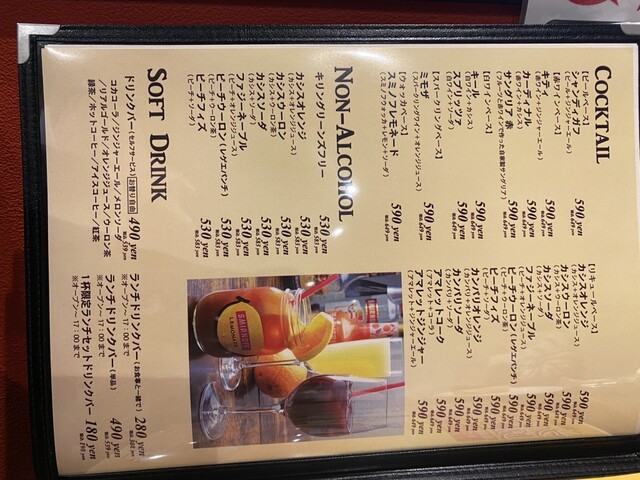 COCKTAIL
【ビールベース】
シャンディガフ 590 yen
(ビール+ジンジャーエール)
【赤ワインベース】
キティ 590 yen
(赤ワイン+ジンジャーエール)
カーディナル 590 yen
(赤ワイン+カシス)
サングリア 赤 590 yen
(フルーツと赤ワインで作った自家製サングリア)
【白ワインベース】
キール 590 yen
(白ワイン+カシス)
スプリッツァ 590 yen
(白ワイン+ソーダ)
【スパークリングベース】
ミモザ 590 yen
(スパークリングワイン+オレンジジュース)
【ウォッカベース】
スミノフレモネード 590 yen
(スミノフウォッカ+レモン+ソーダ)
【リキュールベース】
カシスオレンジ 590 yen
(カシス+オレンジジュース)
カシスウーロン 590 yen
(カシス+ウーロン茶)
カシスソーダ 590 yen
(カシス+ソーダ)
ファジーネーブル 590 yen
(ピーチ+オレンジジュース)
ピーチウーロン(レゲエパンチ) 590 yen
(ピーチ+ウーロン茶)
ピーチフィズ 590 yen
(ピーチ+ソーダ)
カンパリオレンジ 590 yen
(カンパリ+オレンジジュース)
カンパリソーダ 590 yen
(カンパリ+ソーダ)
アマレットコーク 590 yen
(アマレット+コーラ)
アマレットジンジャー 590 yen
(アマレット+ジンジャーエール)
NON-ALCOHOL
キリングリーンズフリー 530 yen
カシスオレンジ 530 yen
(カシス+オレンジジュース)
カシスウーロン 530 yen
(カシス+ウーロン茶)
カシスソーダ 530 yen
(カシス+ソーダ)
ファジーネーブル 530 yen
(ピーチ+オレンジジュース)
ピーチウーロン(レゲエパンチ) 530 yen
(ピーチ+ウーロン茶)
ピーチフィズ 530 yen
(ピーチ+ソーダ)
SMIRNOFF
LEMONADE
SOFT DRINK
ドリンクバー(セルフサービス) お替り自由 490 yen
コカコーラ/ジンジャーエール/メロンソーダ
/リアルゴールド/オレンジジュース/ウーロン茶
緑茶/ホットコーヒー/アイスコーヒー/紅茶
ランチドリンクバー(お食事と一緒で) 280 yen
※オープン〜17:00まで
ランチドリンクバー(単品) 490 yen
※オープン〜17:00まで
1杯限定ランチセットドリンクバー 180 yen
※オープン〜17:00まで